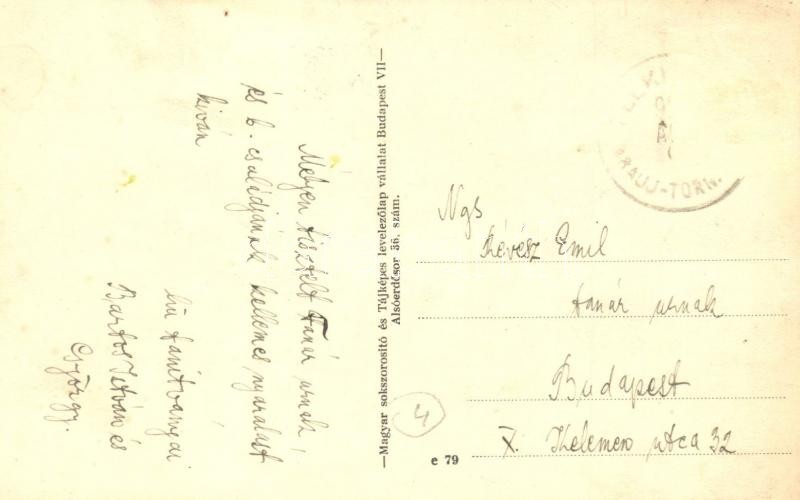 Mélyen tisztelt Tanár urnak
és b. családjának kellemes nyaralást
kiván
hű tanítványai
Bartos István és
György.
—Magyar sokszorositó és Tájképes levelezőlap vállalat Budapest VII—
Alsóerdősor 36. szám.
ABAUJ-TORN.
Ngs
Révész Emil
tanár urnak
Budapest
X. Kelemen utca 32
4
e 79